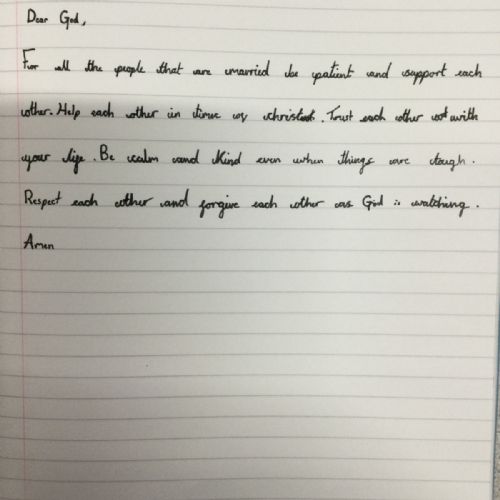 Dear God,
For all the people that are married be patient and support each
other. Help each other in time of christ. Trust each other with
your life. Be calm and kind even when things are tough.
Respect each other and forgive each other as God is watching.
Amen